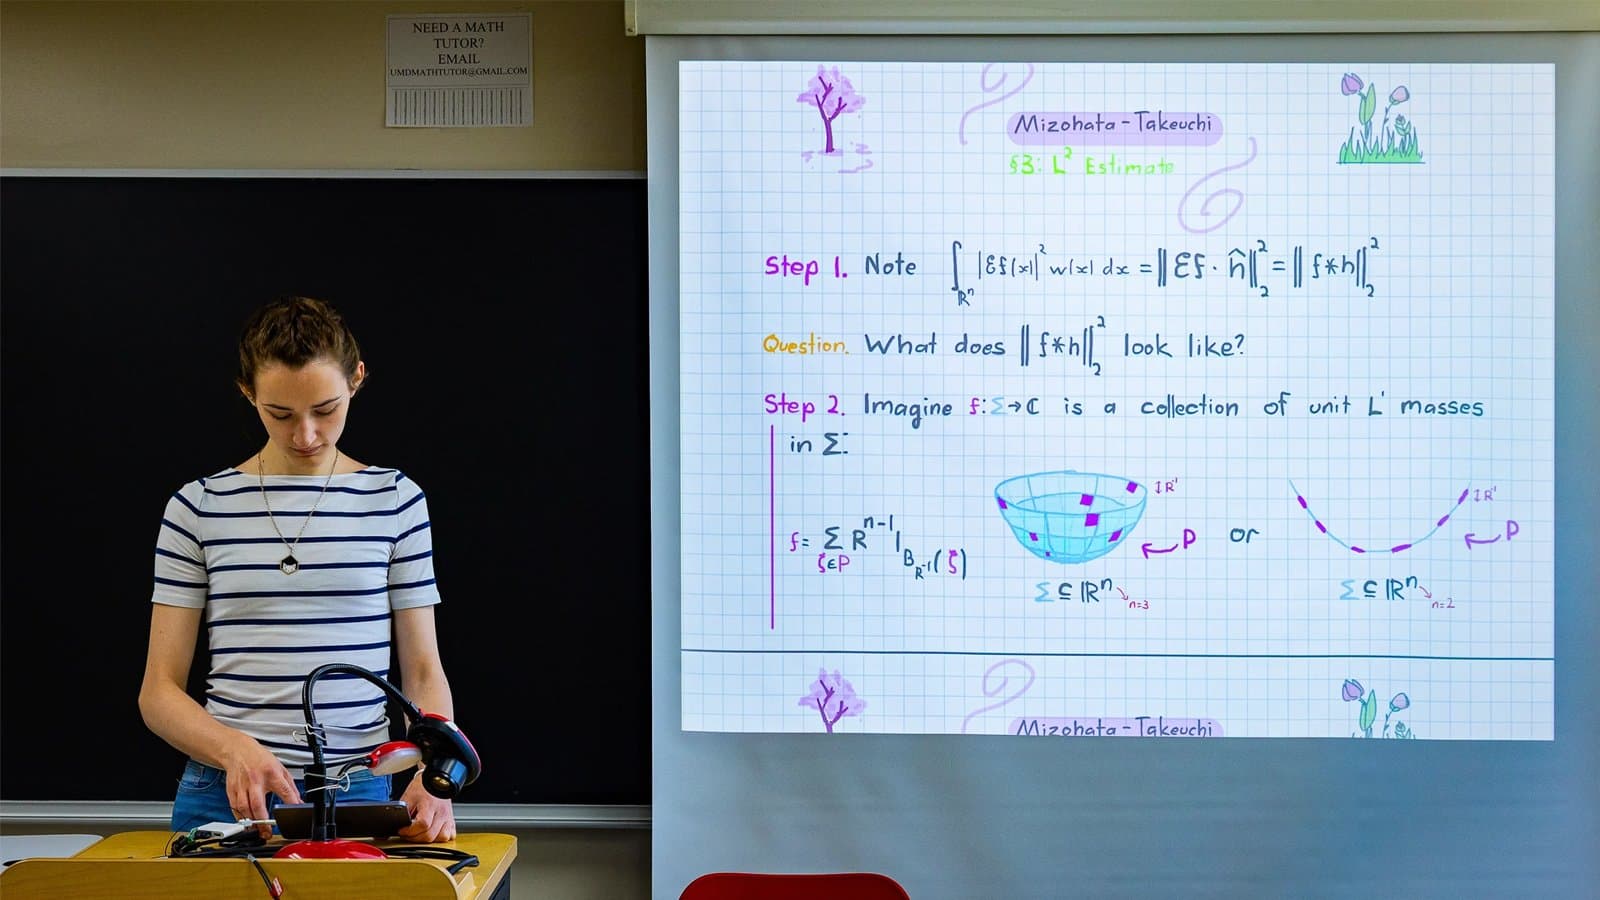 NEED A MATH
TUTOR?
EMAIL
UMDMATHTUTOR@GMAIL.COM
Mizohata-Takeuchi
§3: L² Estimate
Step 1. Note ∫_{ℝⁿ} |Ef(x)|² w(x) dx = ‖Ef · ĥ‖₂² = ‖f*h‖₂²
Question. What does ‖f*h‖₂² look like?
Step 2. Imagine f: Σ→ℂ is a collection of unit L¹ masses
in Σ:
f = Σ_{ζ∈P} R^{n-1} 1_{B_{R^{-1}}(ζ)}
↕R⁻¹
P
or
↕R⁻¹
P
Σ ⊆ ℝⁿ n=3
Σ ⊆ ℝⁿ n=2
Mizohata-Takeuchi